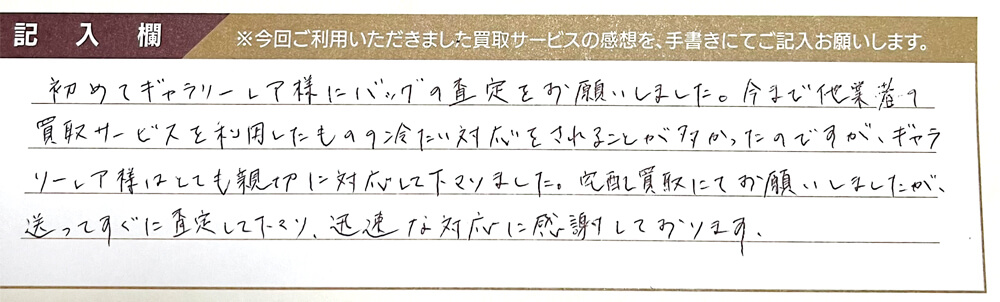 記入欄
※今回ご利用いただきました買取サービスの感想を、手書きにてご記入お願いします。
初めてギャラリーレア様にバッグの査定をお願いしました。今まで他業者の
買取サービスを利用したものの冷たい対応をされることが多かったのですが、ギャラ
リーレア様はとても親切に対応して下さりました。宅配買取にてお願いしましたが、
送ってすぐに査定して下さり、迅速な対応に感謝しております。